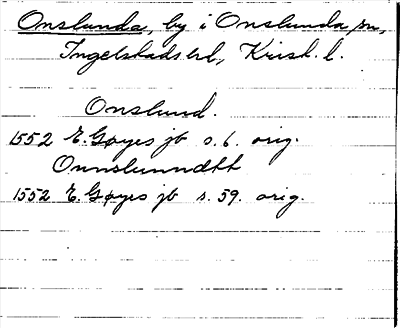 Onslunda, by i Onslunda sn,
Ingelstads hd, Krist. l.
Onslund.
1552 E. Gøyes jb s. 6. orig.
Onnslunndtt
1552 E. Gøyes jb s. 59. orig.